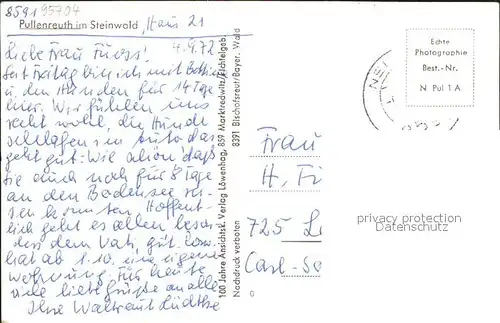 859195704
Pullenreuth im Steinwald, Haus 21
4.9.72
Liebe Frau Fuess!
Seit Freitag bin ich mit
u. den Hunden für 14 Tage
hier. Wir fühlen uns
recht wohl, die Hunde
schlafen im Auto das
geht gut. Wie schön daß
Sie auch noch für 8 Tage
an den Bodensee rei-
sen konnten. Hoffent-
lich geht es allen beson-
ders dem Vati, gut.
hat ab 1.10. eine eigene
Wohnung. Für heute
viele liebe Grüße an alle
Ihre Waltraut Lüdtke
100 Jahre Ansichtsk. Verlag Löwenhag, 859 Marktredwitz/Fichtelgeb.
8391 Bischofsreut/Bayer. Wald
Nachdruck verboten
Echte
Photographie
Best.-Nr.
N Pul 1 A
Frau
H. Fü
725 Le
Carl-Sc
privacy protection
Datenschutz